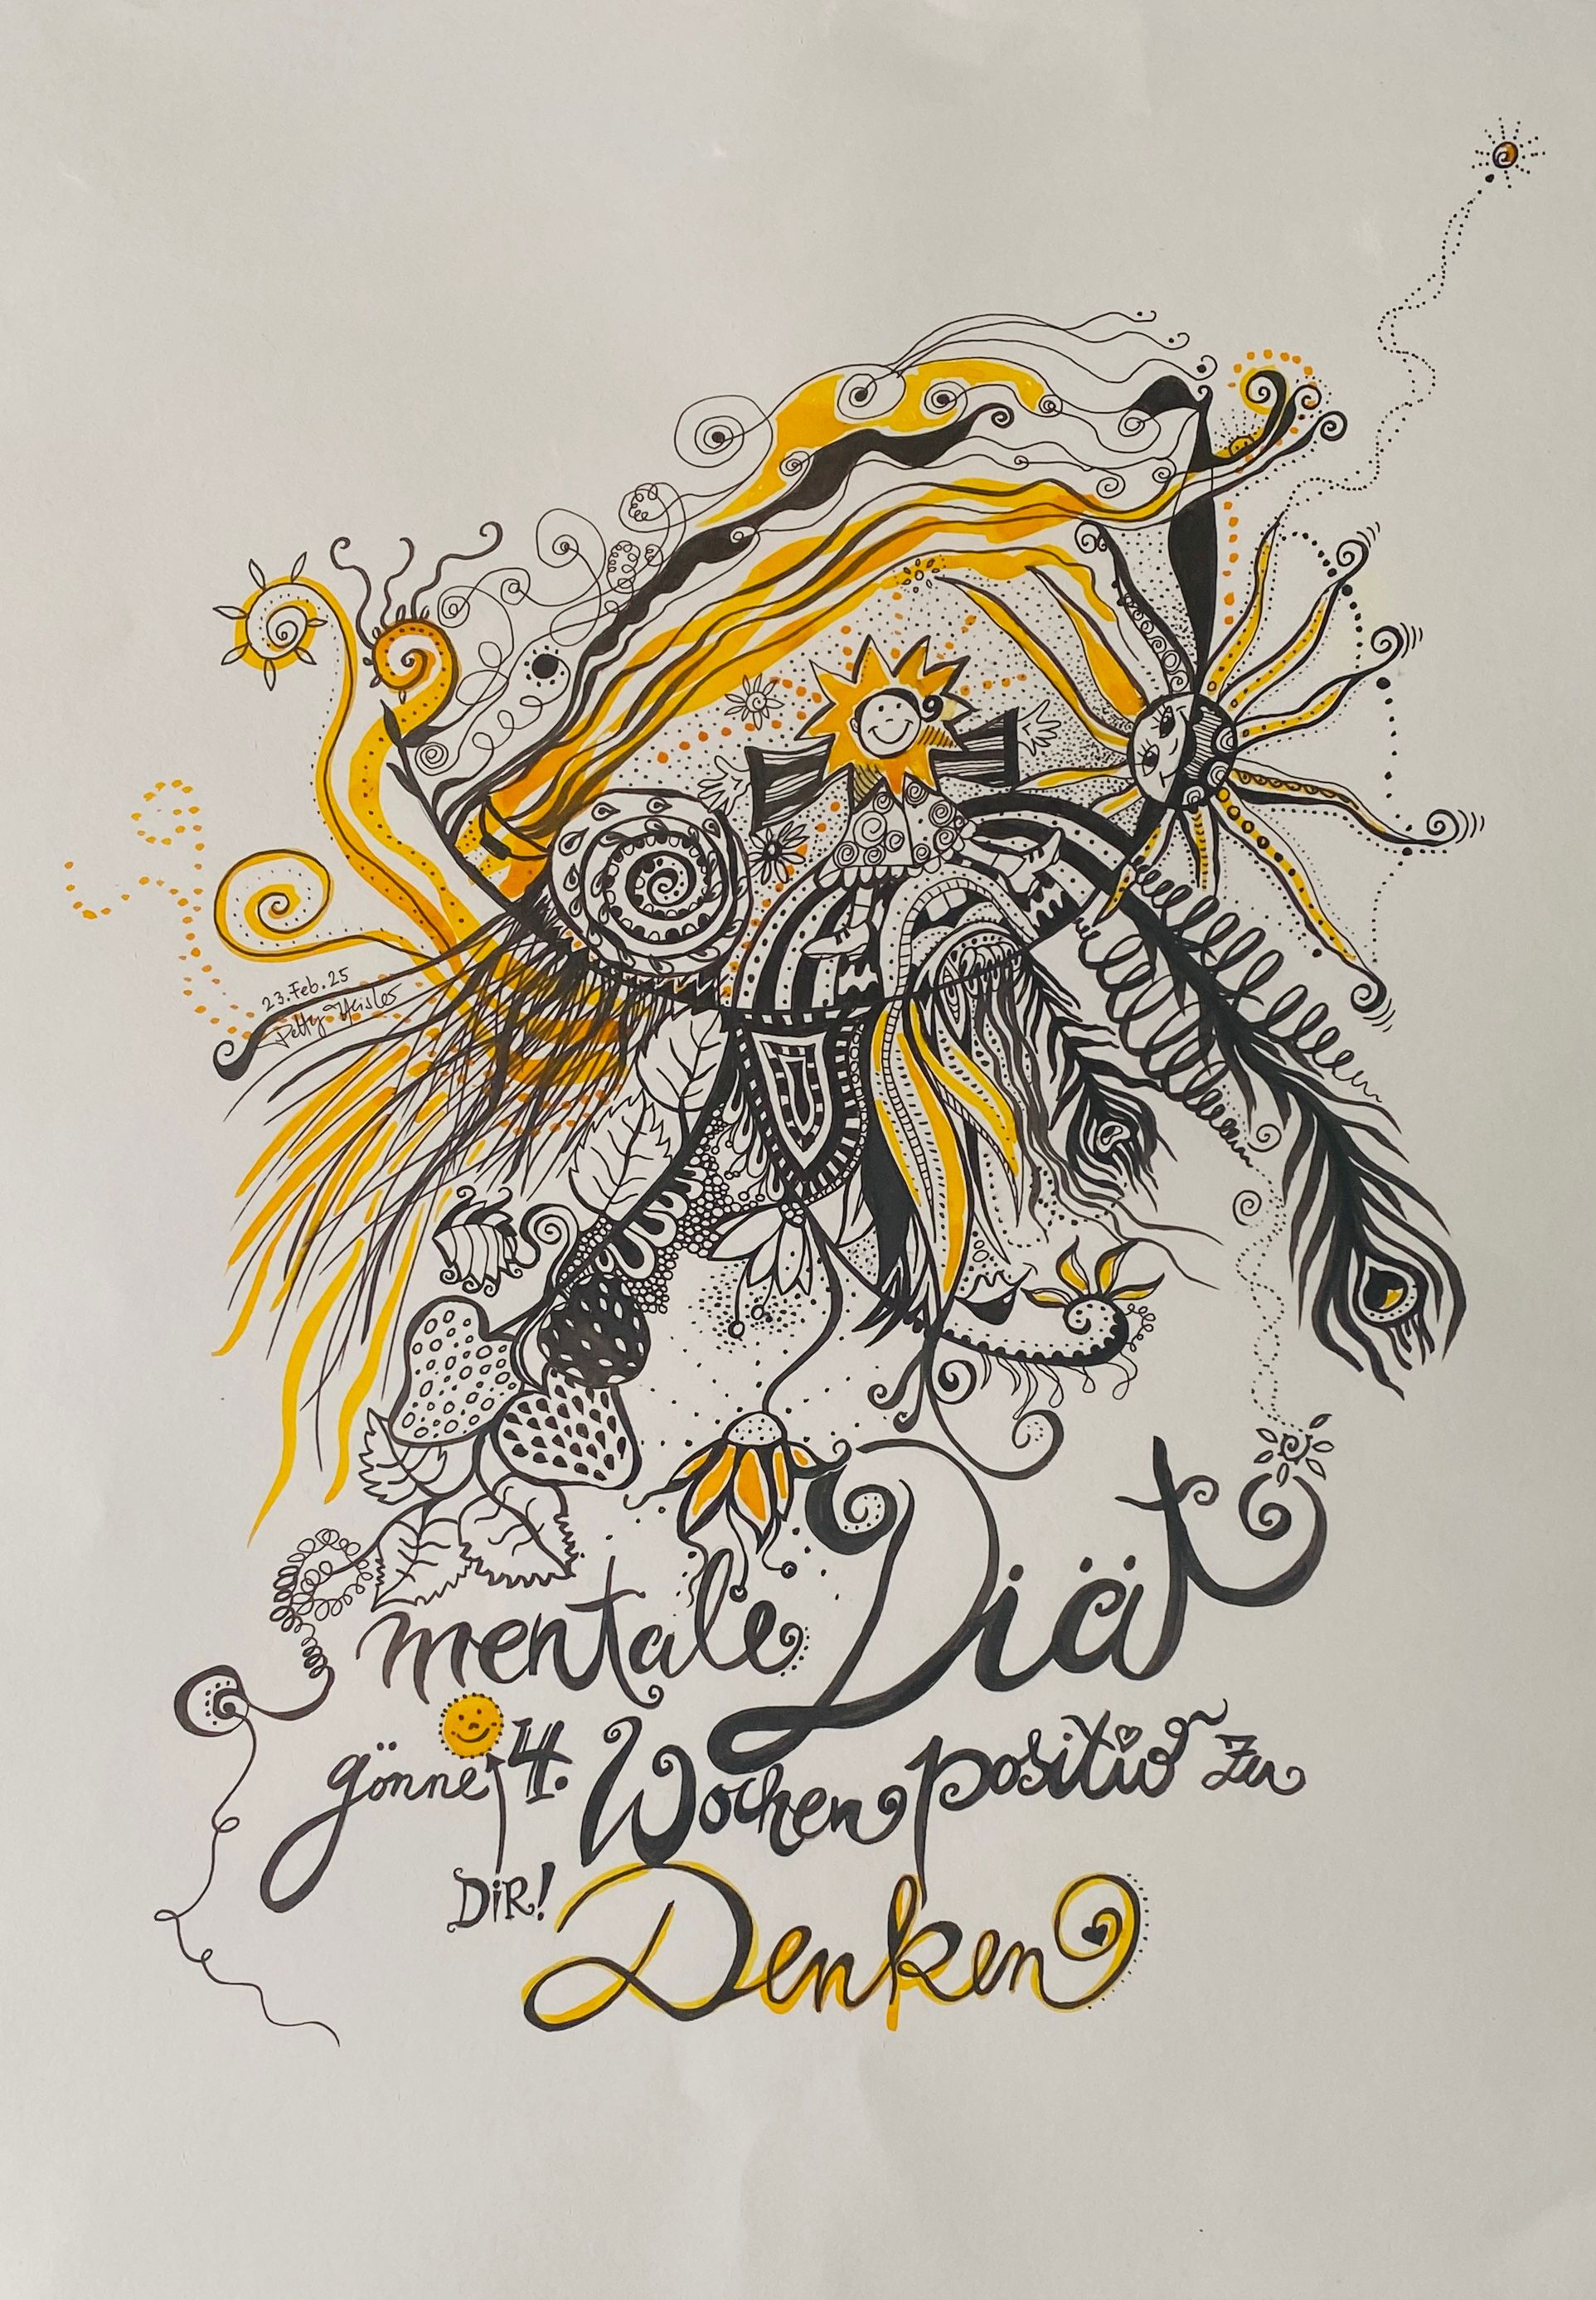 23. Feb. 25
Petty
mentale Diät
gönne 4. Wochen positiv zu
DiR!
Denken